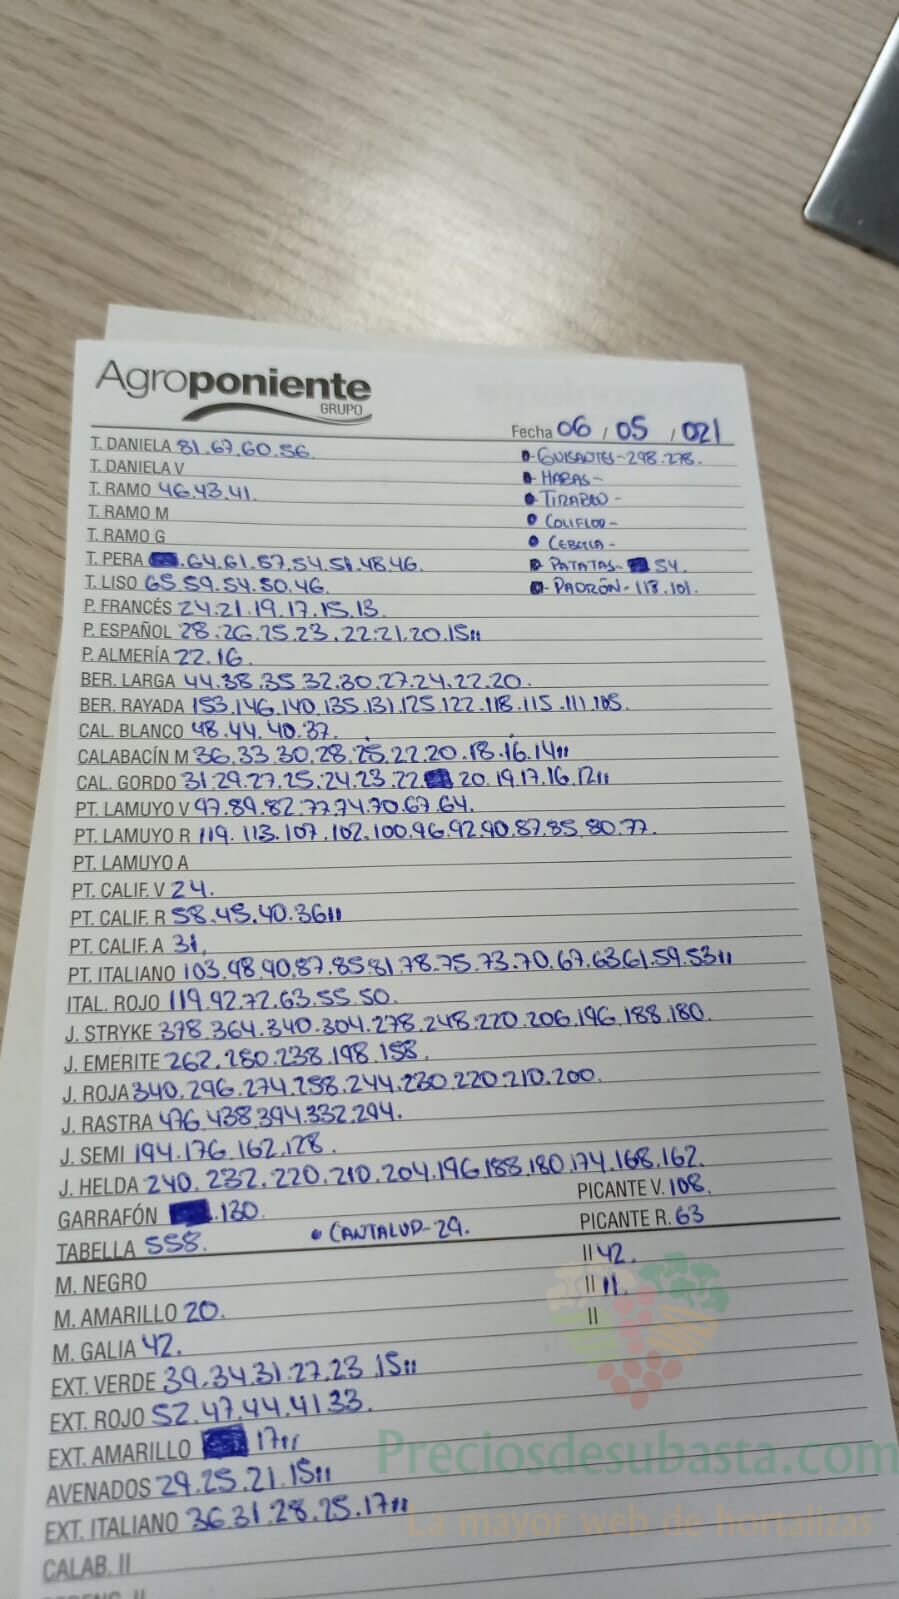 Agroponiente
GRUPO
Fecha 06 / 05 / 021
T. DANIELA 81.67.60.56.
T. DANIELA V
T. RAMO 46.43.41.
T. RAMO M
T. RAMO G
T. PERA .64.61.57.54.51.48.46.
T. LISO 65.59.54.50.46.
P. FRANCÉS 24.21.19.17.15.13.
P. ESPAÑOL 28.26.25.23.22.21.20.15ıı
P. ALMERÍA 22.16.
BER. LARGA 44.38.35.32.30.27.24.22.20.
BER. RAYADA 153.146.140.135.131.125.122.118.115.111.105.
CAL. BLANCO 48.44.40.37.
CALABACÍN M 36.33.30.28.25.22.20.18.16.14ıı
CAL. GORDO 31.29.27.25.24.23.22 20.19.17.16.12ıı
PT. LAMUYO V 97.89.82.77.74.70.67.64.
PT. LAMUYO R 119.113.107.102.100.96.92.90.87.85.80.77.
PT. LAMUYO A
PT. CALIF. V 24.
PT. CALIF. R 58.45.40.36ıı
PT. CALIF. A 31.
PT. ITALIANO 103.98.90.87.85.81.78.75.73.70.67.63.61.59.53ıı
ITAL. ROJO 119.92.72.63.55.50.
J. STRYKE 378.364.340.304.278.248.220.206.196.188.180.
J. EMERITE 262.280.238.198.158.
J. ROJA 340.296.274.258.244.230.220.210.200.
J. RASTRA 476.438.394.332.294.
J. SEMI 194.176.162.128.
J. HELDA 240.232.220.210.204.196.188.180.174.168.162.
GARRAFÓN .130.
PICANTE V. 108.
TABELLA 558.
• CANTALUP-29.
PICANTE R. 63
M. NEGRO
II 42.
M. AMARILLO 20.
II 11.
M. GALIA 42.
II
EXT. VERDE 39.34.31.27.23.15ıı
EXT. ROJO 52.47.44.41.33.
EXT. AMARILLO 17ıı
AVENADOS 29.25.21.15ıı
EXT. ITALIANO 36.31.28.25.17ıı
CALAB. II
- GUISANTES-298.278.
- HABAS-
• TIRABEO-
• COLIFLOR-
• CEBOLLA-
- PATATAS- 54.
- PADRÓN-118.101.
Preciosdesubasta.com
La mayor web de hortalizas